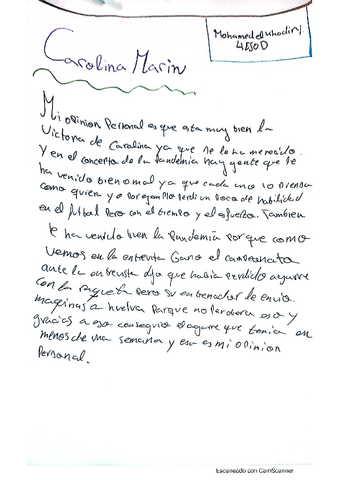 Mohamed el
4ESO D
Carolina Marin
Mi opinion Personal es que esta muy bien la
Victoria de Carolina ya que se lo ha merecido.
Y en el concepto de la Pandemia hay gente que le
ha venido bien o mal ya que cada uno lo
como quiera yo Por ejemplo Perdi un Poco de habilidad
en el futbol Pero con el tiempo y el esfuerzo. Tambien
le ha venido bien la Pandemia Porque como
Vemos en la entrevista Gano el campeonato
ante la entrevista dijo que habia perdido agarre
con la raqueta Pero su entrenador le envio
maquinas a huelva Parque no Perdiera eso y
gracias a eso conseguio el agarre que tenia en
menos de una semana y esa es mi opinion
Personal.
Escaneado con CamScanner